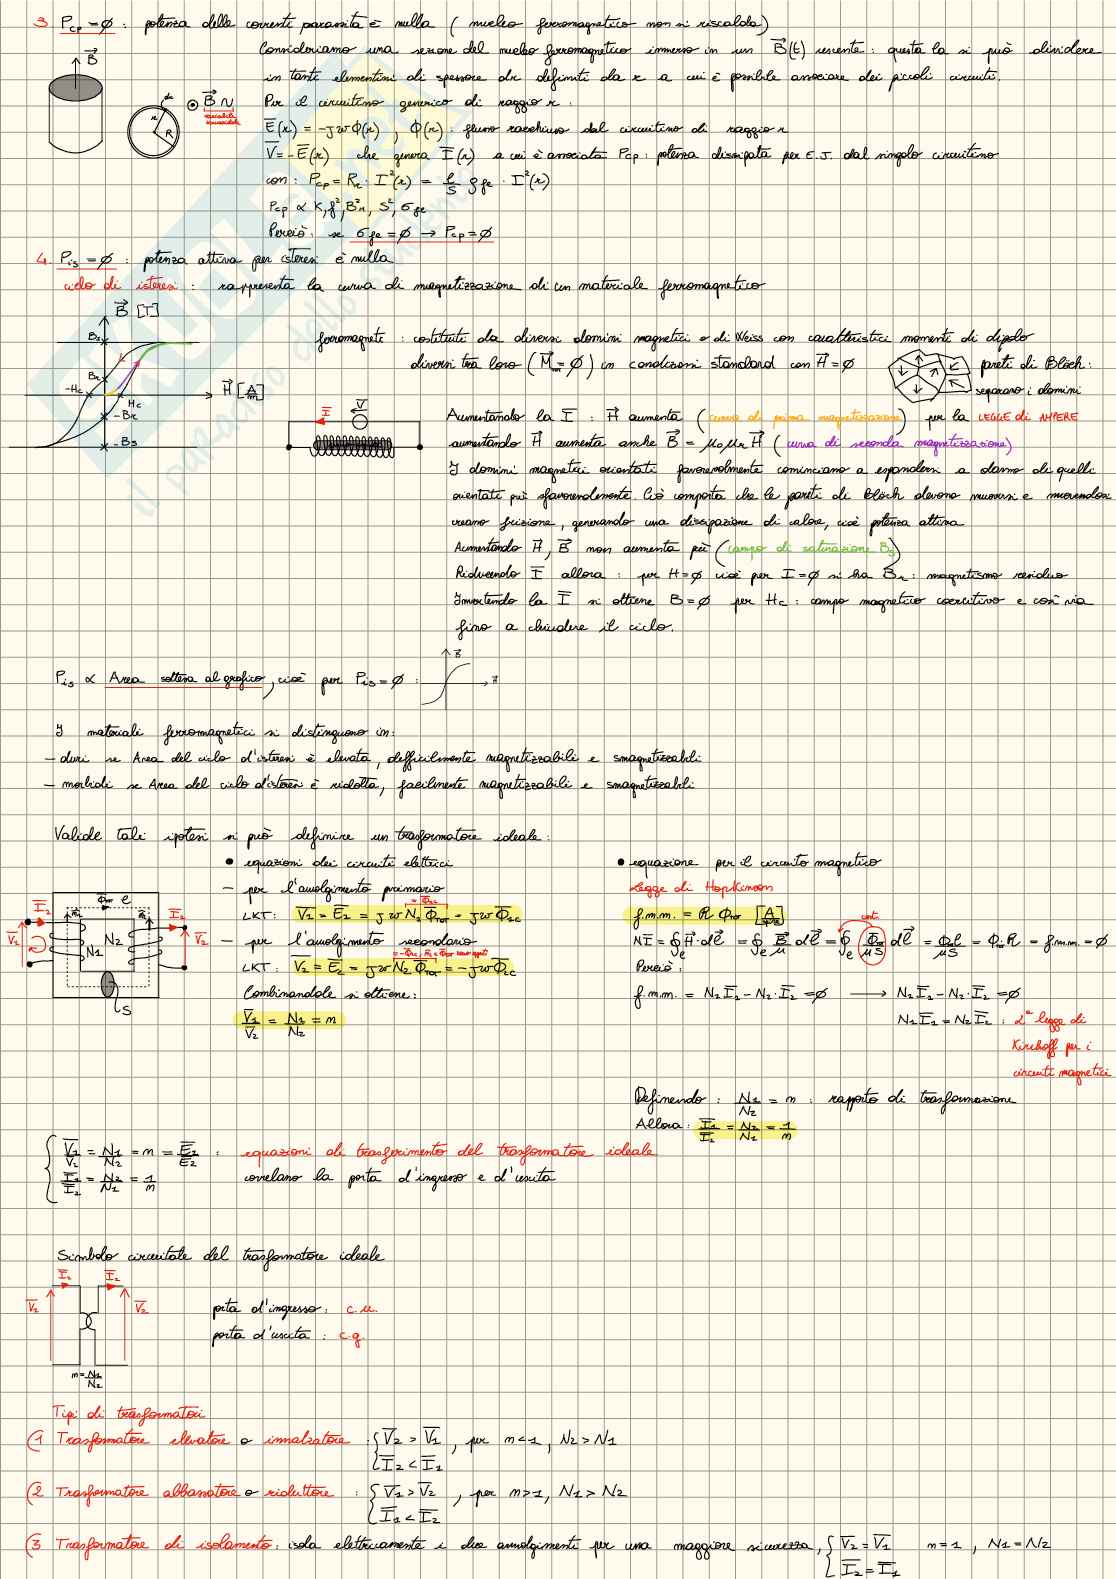 3 Pcp = ∅ : potenza delle correnti parassite è nulla ( nucleo ferromagnetico non si riscalda)
B
Consideriamo una sezione del nucleo ferromagnetico immerso in un B(t) uscente: questa la si può dividere
in tanti elementini di spessore dr definiti da r a cui è possibile associare dei piccoli circuiti.
dr r R
B ∿
Per il circuitino generico di raggio r :
E(r) = -jωΦ(r) , Φ(r) : flusso racchiuso dal circuitino di raggio r
V = -E(r) che genera I(r) a cui è associata Pcp : potenza dissipata per E.J. dal singolo circuitino
con : Pcp = Rr · I²(r) = ℓ/S ρfe · I²(r)
Pcp ∝ K, f², B²M, S², σfe
Perciò: se σfe = ∅ → Pcp = ∅
4. Pis = ∅ : potenza attiva per isteresi è nulla
ciclo di isteresi : rappresenta la curva di magnetizzazione di un materiale ferromagnetico
B [T]
Bs
Br
-Hc
Hc
H [A/m]
-Br
-Bs
ferromagneti : costituiti da diversi domini magnetici o di Weiss con caratteristici momenti di dipolo
diversi tra loro (M = ∅) in condizioni standard con H = ∅
pareti di Blöch:
separano i domini
I V
Aumentando la I : H aumenta (curva di prima magnetizzazione) per la LEGGE di AMPERE
aumentando H aumenta anche B = μ0μr H ( curva di seconda magnetizzazione)
I domini magnetici orientati favorevolmente cominciano a espandersi a danno di quelli
orientati più sfavorevolmente. Ciò comporta che le pareti di Blöch devono muoversi e muovendosi
creano frizione, generando una dissipazione di calore, cioè potenza attiva
Aumentando H, B non aumenta più (campo di saturazione Bs)
Riducendo I allora : per H=∅ cioè per I=∅ si ha Br : magnetismo residuo
Invertendo la I si ottiene B=∅ per Hc : campo magnetico coercitivo e così via
fino a chiudere il ciclo.
Pis ∝ Area sottesa al grafico, cioè per Pis = ∅ :
B
I materiali ferromagnetici si distinguono in:
- duri se Area del ciclo d'isteresi è elevata, difficilmente magnetizzabili e smagnetizzabili
- morbidi se Area del ciclo d'isteresi è ridotta, facilmente magnetizzabili e smagnetizzabili
Valide tali ipotesi si può definire un trasformatore ideale:
• equazioni dei circuiti elettrici
- per l'avvolgimento primario
LKT: V1 = E1 = jω N1 Φmr = jωΦ1c
- per l'avvolgimento secondario
LKT: V2 = E2 = jω N2 Φmr = -jωΦ2c
Combinandole si ottiene:
V1/V2 = N1/N2 = m
I1 V1 N1 N2 ℓ I2 V2 S
• equazione per il circuito magnetico
Legge di Hopkinson
f.m.m. = R Φmr [A/spire]
cost.
NI = ∮ H·dℓ = ∮ B/μ dℓ = ∮ Φ/μS dℓ = Φℓ/μS = Φ·R = f.m.m. = ∅
Perciò:
f.m.m. = N1I1 - N2·I2 = ∅ → N1I1 - N2·I2 = ∅
N1I1 = N2I2 : 2ª legge di
Kirchoff per i
circuiti magnetici
Definendo : N1/N2 = m : rapporto di trasformazione
Allora: I1/I2 = N2/N1 = 1/m
V1/V2 = N1/N2 = m = E1/E2 : equazioni di trasferimento del trasformatore ideale
I1/I2 = N2/N1 = 1/m correlano la porta d'ingresso e d'uscita
Simbolo circuitale del trasformatore ideale
I1 I2
V1 V2
m = N1/N2
porta d'ingresso: c.u.
porta d'uscita : c.g.
Tipi di trasformatori
(1 Trasformatore elevatore o innalzatore : { V2 > V1 , per m<1 , N2 > N1
I2 < I1
(2 Trasformatore abbassatore o riduttore : { V1 > V2 , per m>1, N1 > N2
I1 < I2
(3 Trasformatore di isolamento: isola elettricamente i due avvolgimenti per una maggiore sicurezza, { V2 = V1 m=1 , N1 = N2
I2 = I1